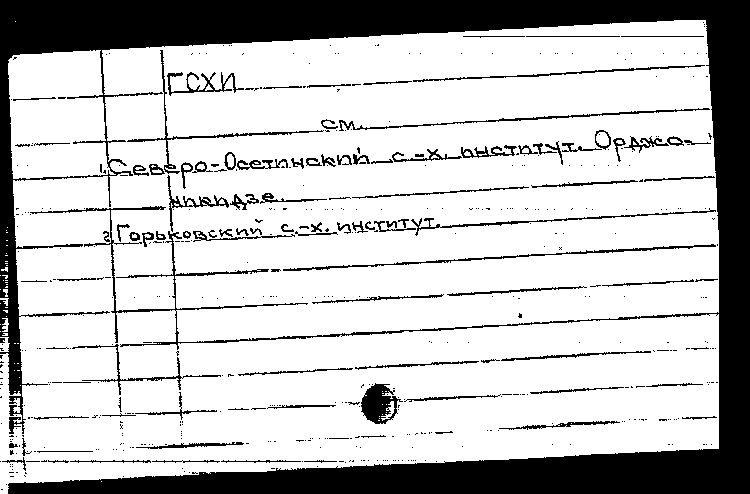 ГСХИ
см.
1. Северо-Осетинский с.-х. институт. Орджо-
никидзе.
2. Горьковский с.-х. институт.